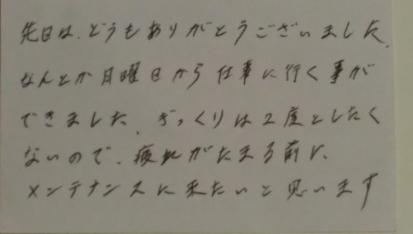 先日は、どうもありがとうございました。
なんとか月曜日から仕事に行く事が
できました。ぎっくりは2度としたく
ないので、疲れがたまる前に、
メンテナンスに来たいと思います